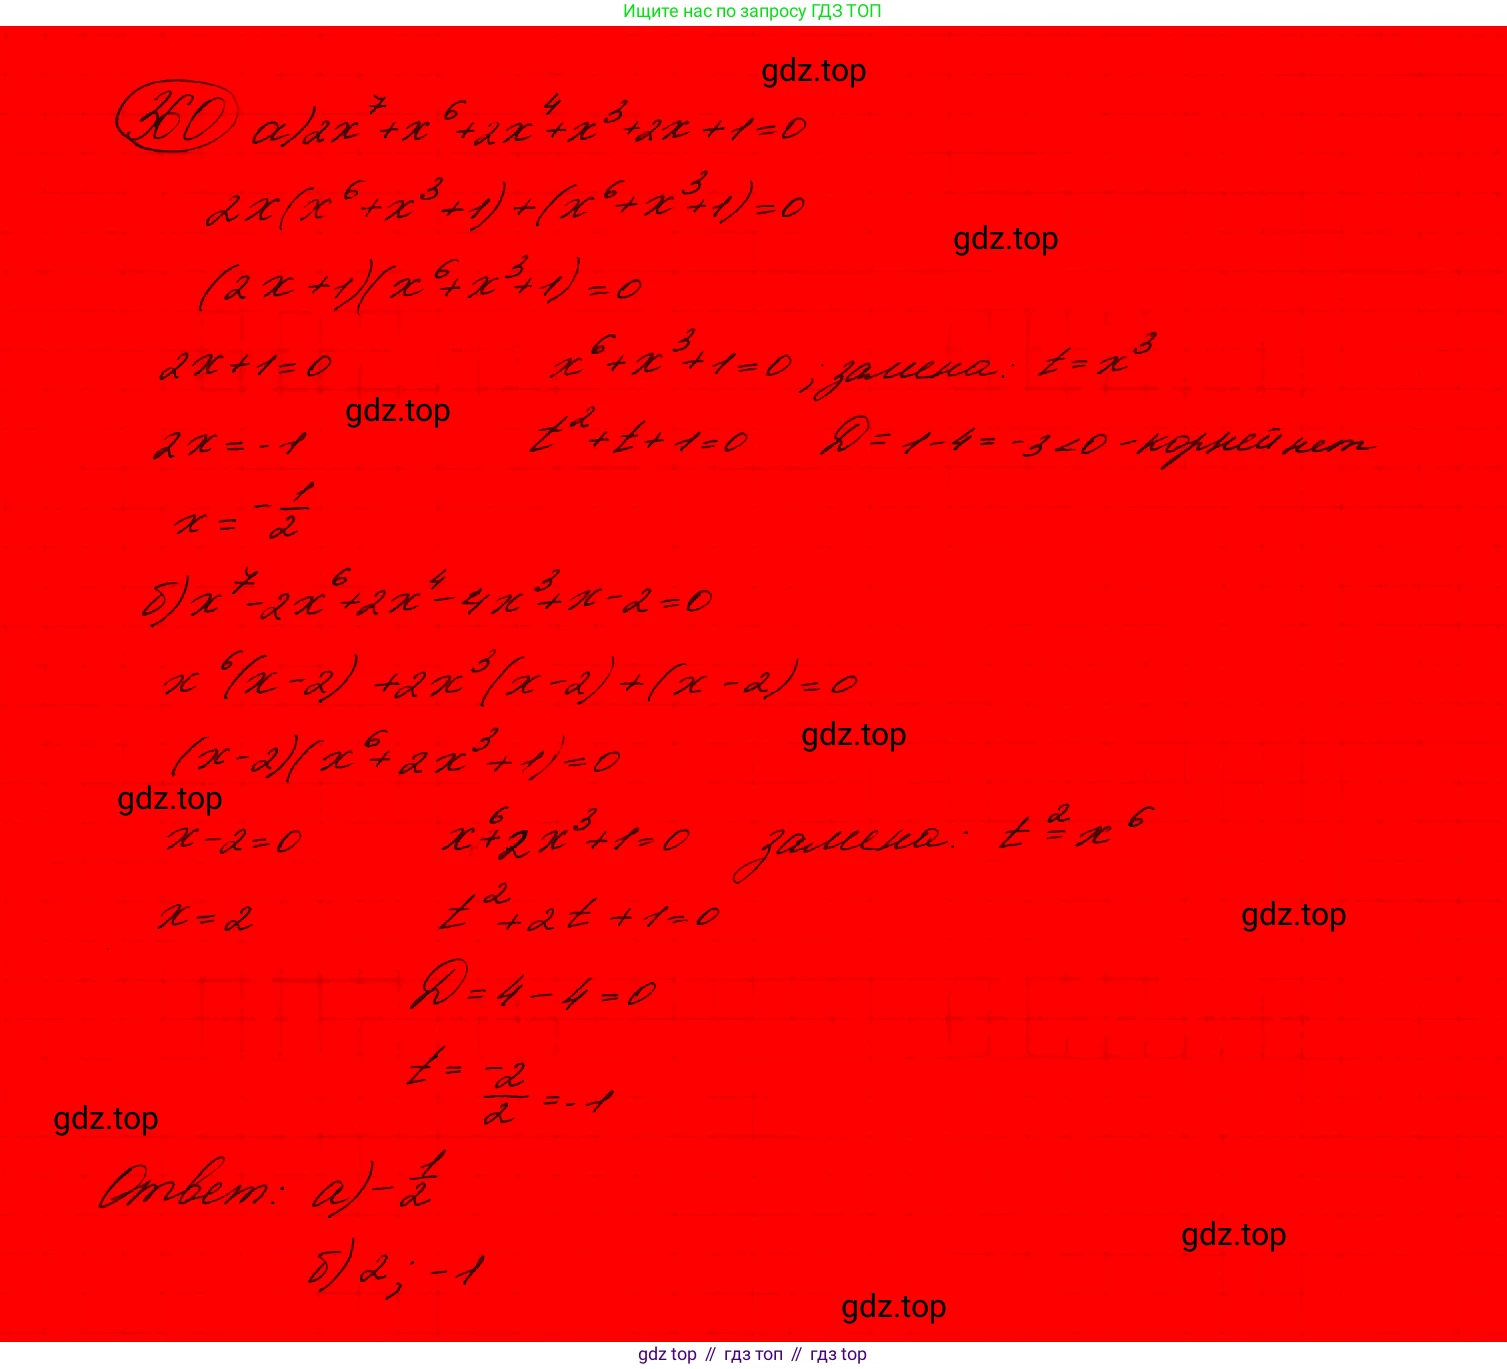 Ищите нас по запросу ГДЗ ТОП
gdz.top
360 а) 2x⁷+x⁶+2x⁴+x³+2x+1=0
2x(x⁶+x³+1)+(x⁶+x³+1)=0
gdz.top
(2x+1)(x⁶+x³+1)=0
2x+1=0 x⁶+x³+1=0 ; замена: t=x³
gdz.top
2x=-1 t²+t+1=0 D=1-4=-3<0 - корней нет
x=-1/2
б) x⁷-2x⁶+2x⁴-4x³+x-2=0
x⁶(x-2)+2x³(x-2)+(x-2)=0
gdz.top
(x-2)(x⁶+2x³+1)=0
gdz.top
x-2=0 x⁶+2x³+1=0 замена: t²=x⁶
x=2 t²+2t+1=0
gdz.top
D=4-4=0
t=-2/2=-1
gdz.top
Ответ: а) -1/2
gdz.top
б) 2; -1
gdz.top
gdz top // гдз топ // гдз top